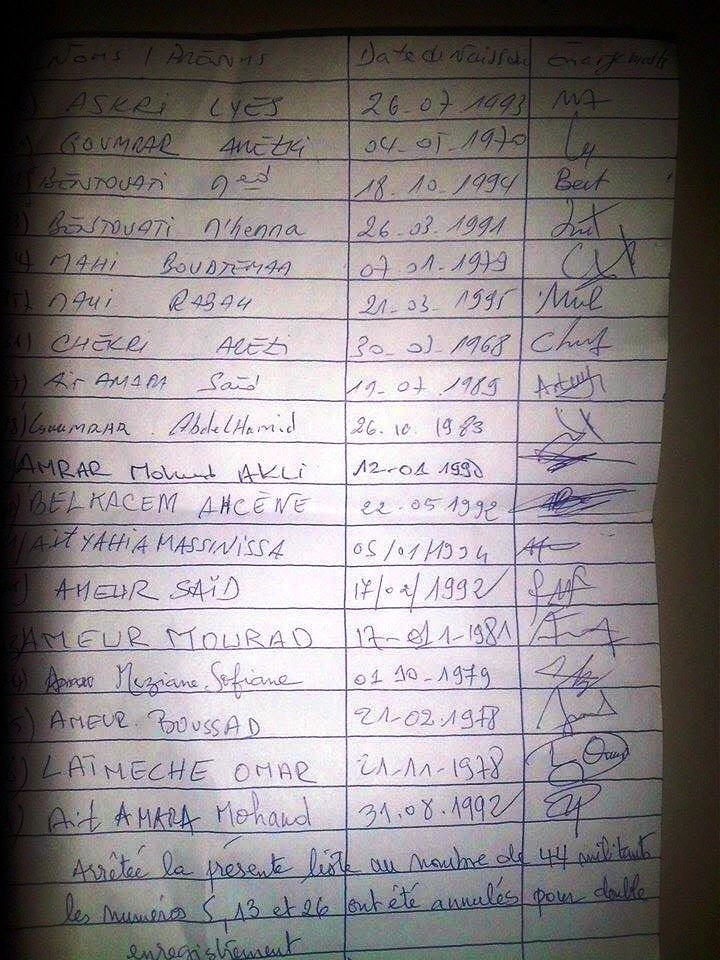 Noms / Prénoms Date de Naissan Emargements
ASKRI LYES 26-07-1993
GOUMRAR AREZKI 04-05-1970
BENTOUATI Med 18-10-1994 Bent
BENTOUATI M'henna 26-03-1991
MAHI BOUDJEMAA 07-01-1979
MAHI RABAH 21-03-1995
CHEKRI AREZKI 1968
Ait AMARA Saïd 19-07-1989
Goumrar AbdelHamid 26.10.1983
AMRAR Mohand AKLI 12-01 1990
BELKACEM AHCENE 22.05 1992
Ait YAHIA MASSINISSA 05/01/1994
AMEUR SAÏD 17/02/1992
AMEUR MOURAD 17-01-1981
Meziane Sofiane 01 10-1979
5) AMEUR BOUSSAD 21-02.1978
LAÏMECHE OMAR 21-11-1978
Ait AMARA Mohand 31.08.1992
Arrêtée la présente liste au nombre de 44 militants
les numéros 5, 13 et 26 ont été annulés pour double
enregistrement